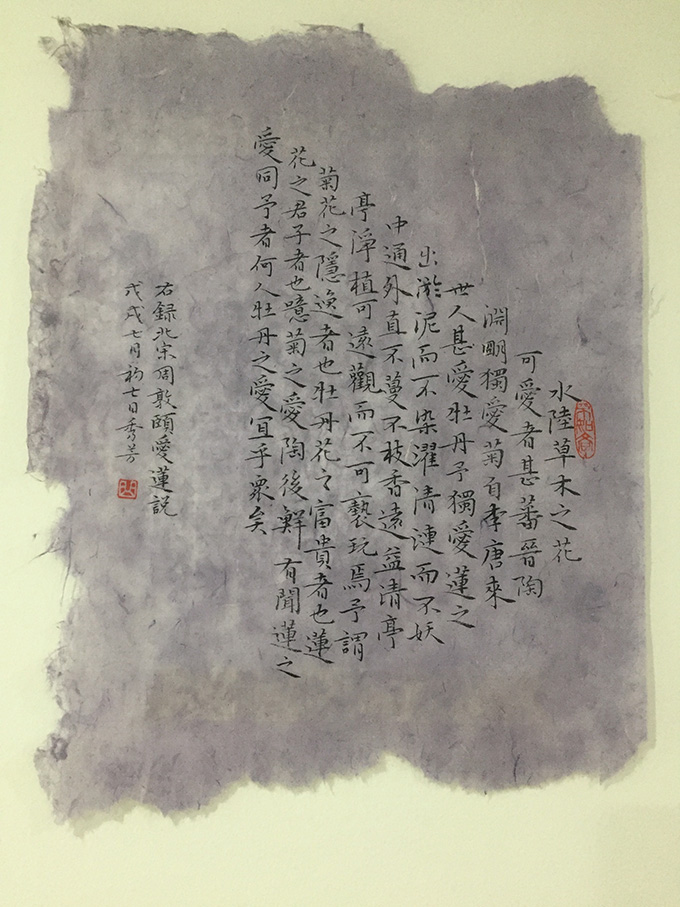 水陸草木之花
可愛者甚蕃晉陶
淵朙獨愛菊自李唐來
世人甚愛牡丹予獨愛蓮之
出淤泥而不染濯清漣而不妖
中通外直不蔓不枝香遠益清亭
亭淨植可遠觀而不可褻玩焉予謂
菊花之隱逸者也牡丹花之富貴者也蓮
花之君子者也噫菊之愛陶後鮮有聞蓮之
愛同予者何人牡丹之愛宜乎眾矣
右錄北宋周敦頤愛蓮説
戊戌七月初七日秀芳